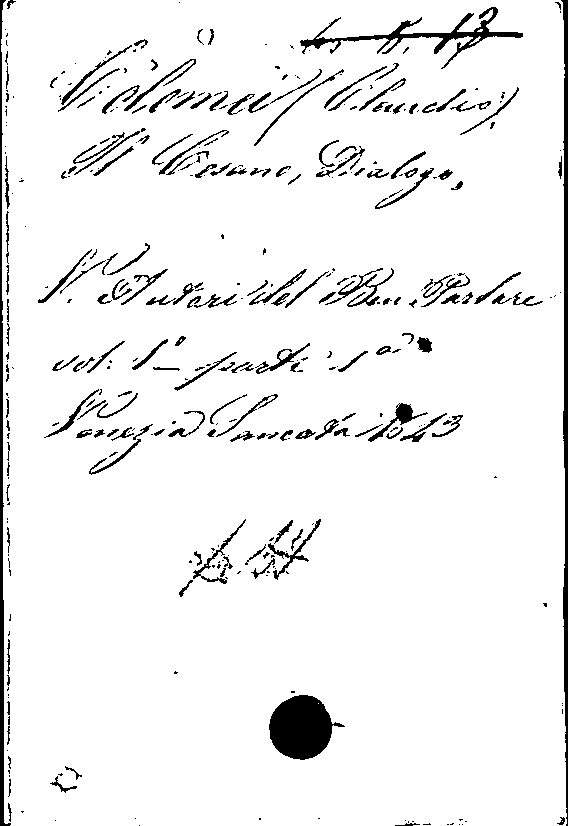 Tolomei (Claudio)
Il Cesano, Dialogo,
V. Autori del Ben Parlare
vol: 1º parte 1ª
Venezia Salicata 1643